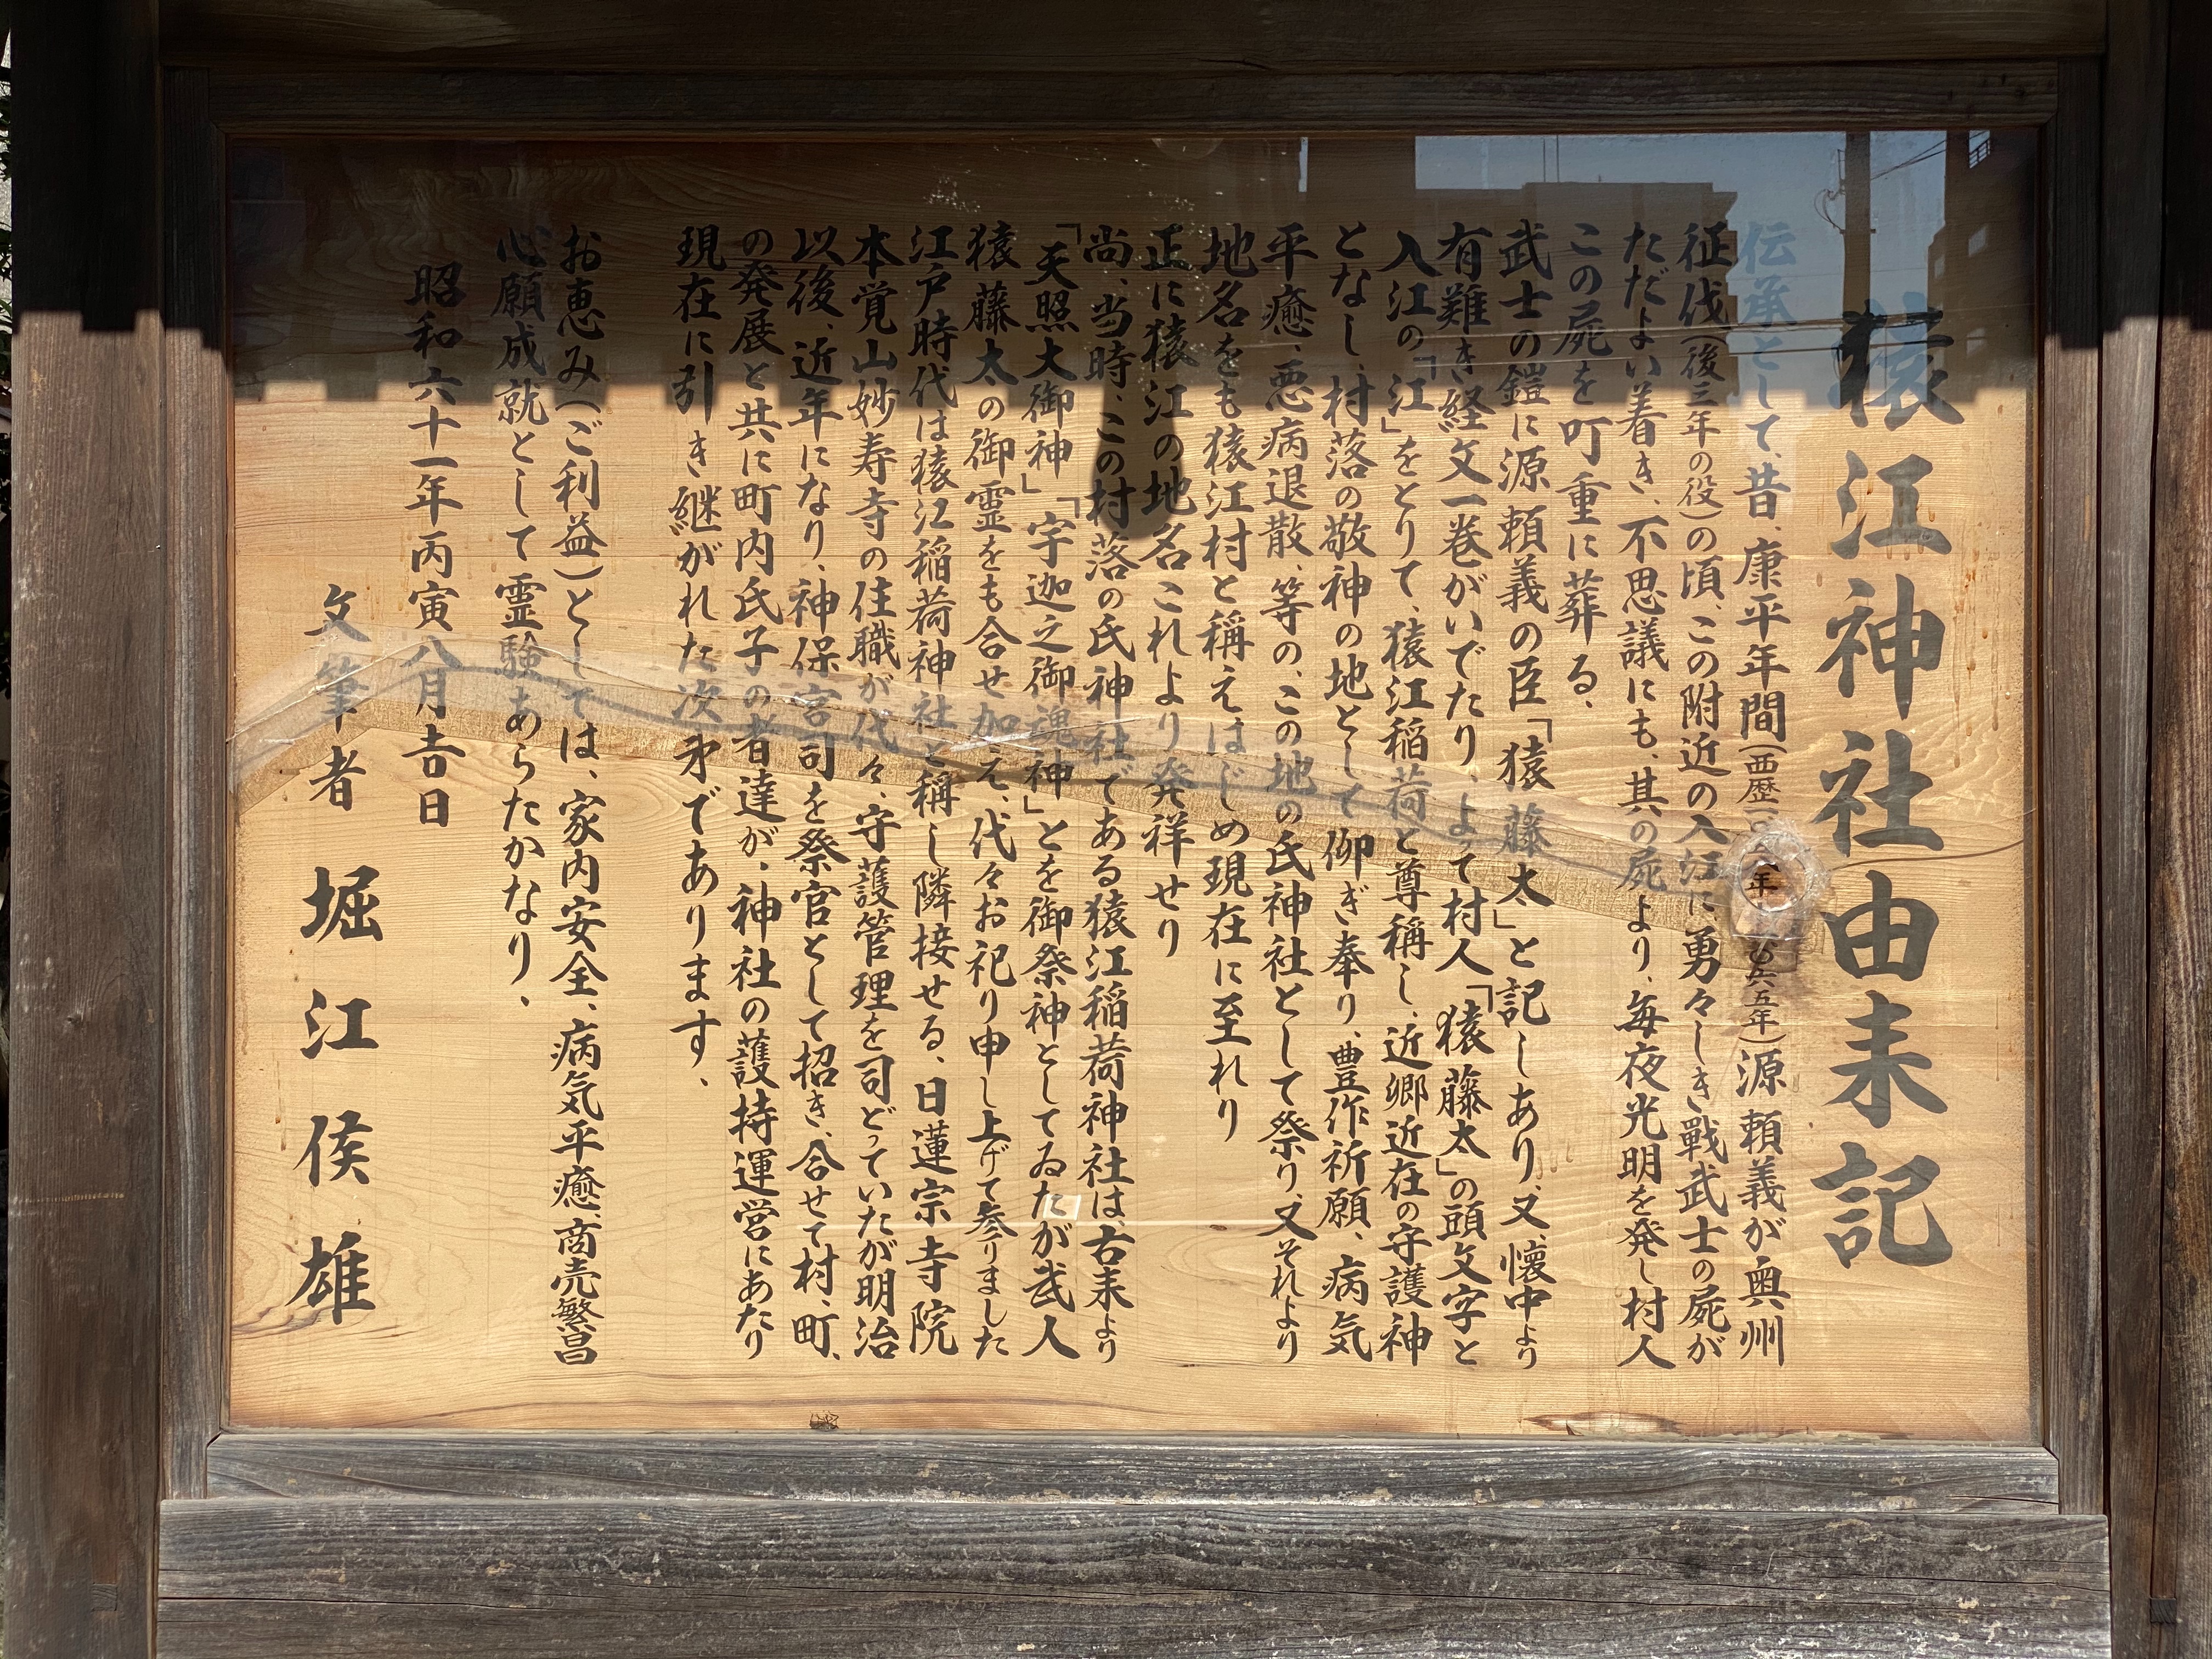 猿江神社由来記
伝承として、昔、康平年間(西歴 年 六五年)源頼義が奥州
征伐(後三年の役)の頃、この附近の入江に勇々しき戰武士の屍が
ただよい着き、不思議にも、其の屍より、毎夜光明を発し村人
この屍を叮重に葬る、
武士の鎧に源頼義の臣「猿藤太」と記しあり、又、懐中より
有難き経文一巻がいでたり、よって村人「猿藤太」の頭文字と
入江の「江」をとりて、猿江稲荷と尊稱し、近郷近在の守護神
となし、村落の敬神の地として仰ぎ奉り、豊作祈願、病気
平癒、悪病退散、等の、この地の氏神社として祭り、又それより
地名をも猿江村と稱えはじめ現在に至れり
正に猿江の地名これより発祥せり
尚、当時、この村落の氏神社である猿江稲荷神社は、古来より
「天照大御神」「宇迦之御魂神」とを御祭神としてゐたが武人
猿藤太の御霊をも合せ加え、代々お祀り申し上げて参りました
江戸時代は猿江稲荷神社と稱し隣接せる、日蓮宗寺院
本覚山妙寿寺の住職が代々、守護管理を司どっていたが明治
以後、近年になり、神保宮司を祭官として招き、合せて村、町、
の発展と共に町内氏子の者達が、神社の護持運営にあたり
現在に引き継がれた次才であります、
お恵み(ご利益)としては、家内安全、病気平癒、商売繁昌
心願成就として霊験あらたかなり、
昭和六十一年丙寅八月吉日
文筆者 堀江侯雄